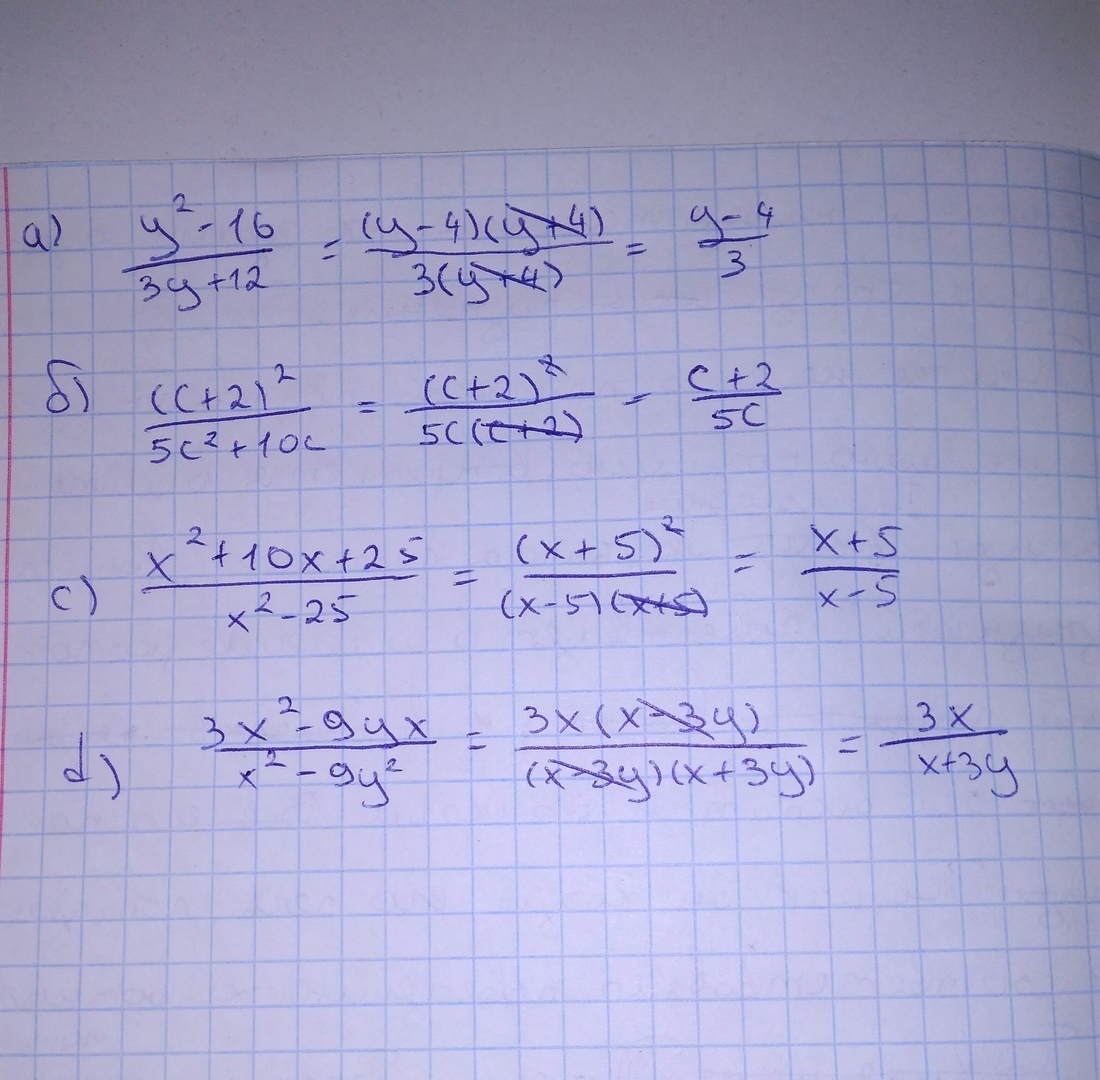 а) (y² - 16)/(3y + 12) = ((y - 4)(y + 4))/(3(y + 4)) = (y - 4)/3
б) (c + 2)²/(5c² + 10c) = (c + 2)²/(5c(c + 2)) = (c + 2)/(5c)
c) (x² + 10x + 25)/(x² - 25) = (x + 5)²/((x - 5)(x + 5)) = (x + 5)/(x - 5)
d) (3x² - 9yx)/(x² - 9y²) = (3x(x - 3y))/((x - 3y)(x + 3y)) = 3x/(x + 3y)